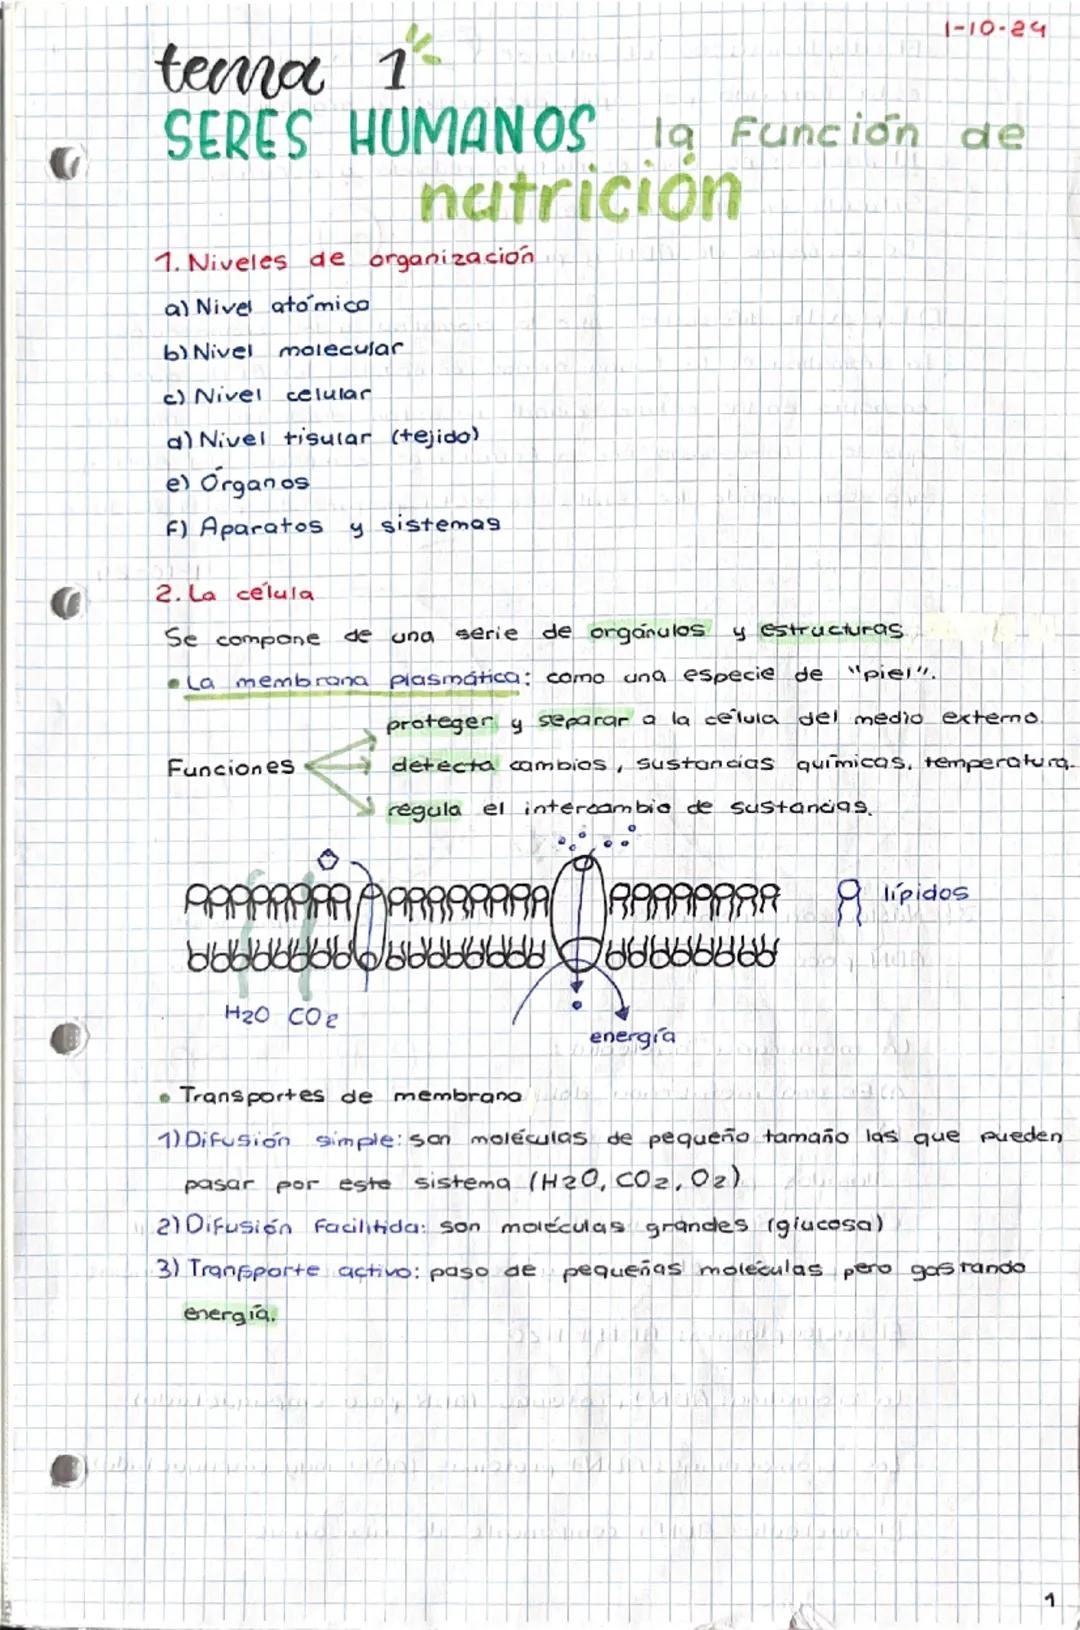 1-10-24
tema 1
SERES HUMANOS la Función de
nutrición
1. Niveles de organización
a) Nivel atómico
b) Nivel molecular
c) Nivel celular
d) Nivel tisular (tejido)
e) Órganos
F) Aparatos y sistemas
2. La célula
Se compone de una serie de orgánulos y estructuras
• La membrana plasmática: como una especie de "piel".
proteger y separar a la célula del medio externo.
Funciones
detecta cambios, sustancias químicas, temperatura.
regula el intercambio de sustancias.
lípidos
H2O CO2
energía
• Transportes de membrana
1) Difusión simple: son moléculas de pequeño tamaño las que pueden
pasar por este sistema (H2O, CO2, O2)
2) Difusión Facilitida: son moléculas grandes (glucosa)
3) Transporte activo: paso de pequeñas moléculas pero gastando
energía.
1